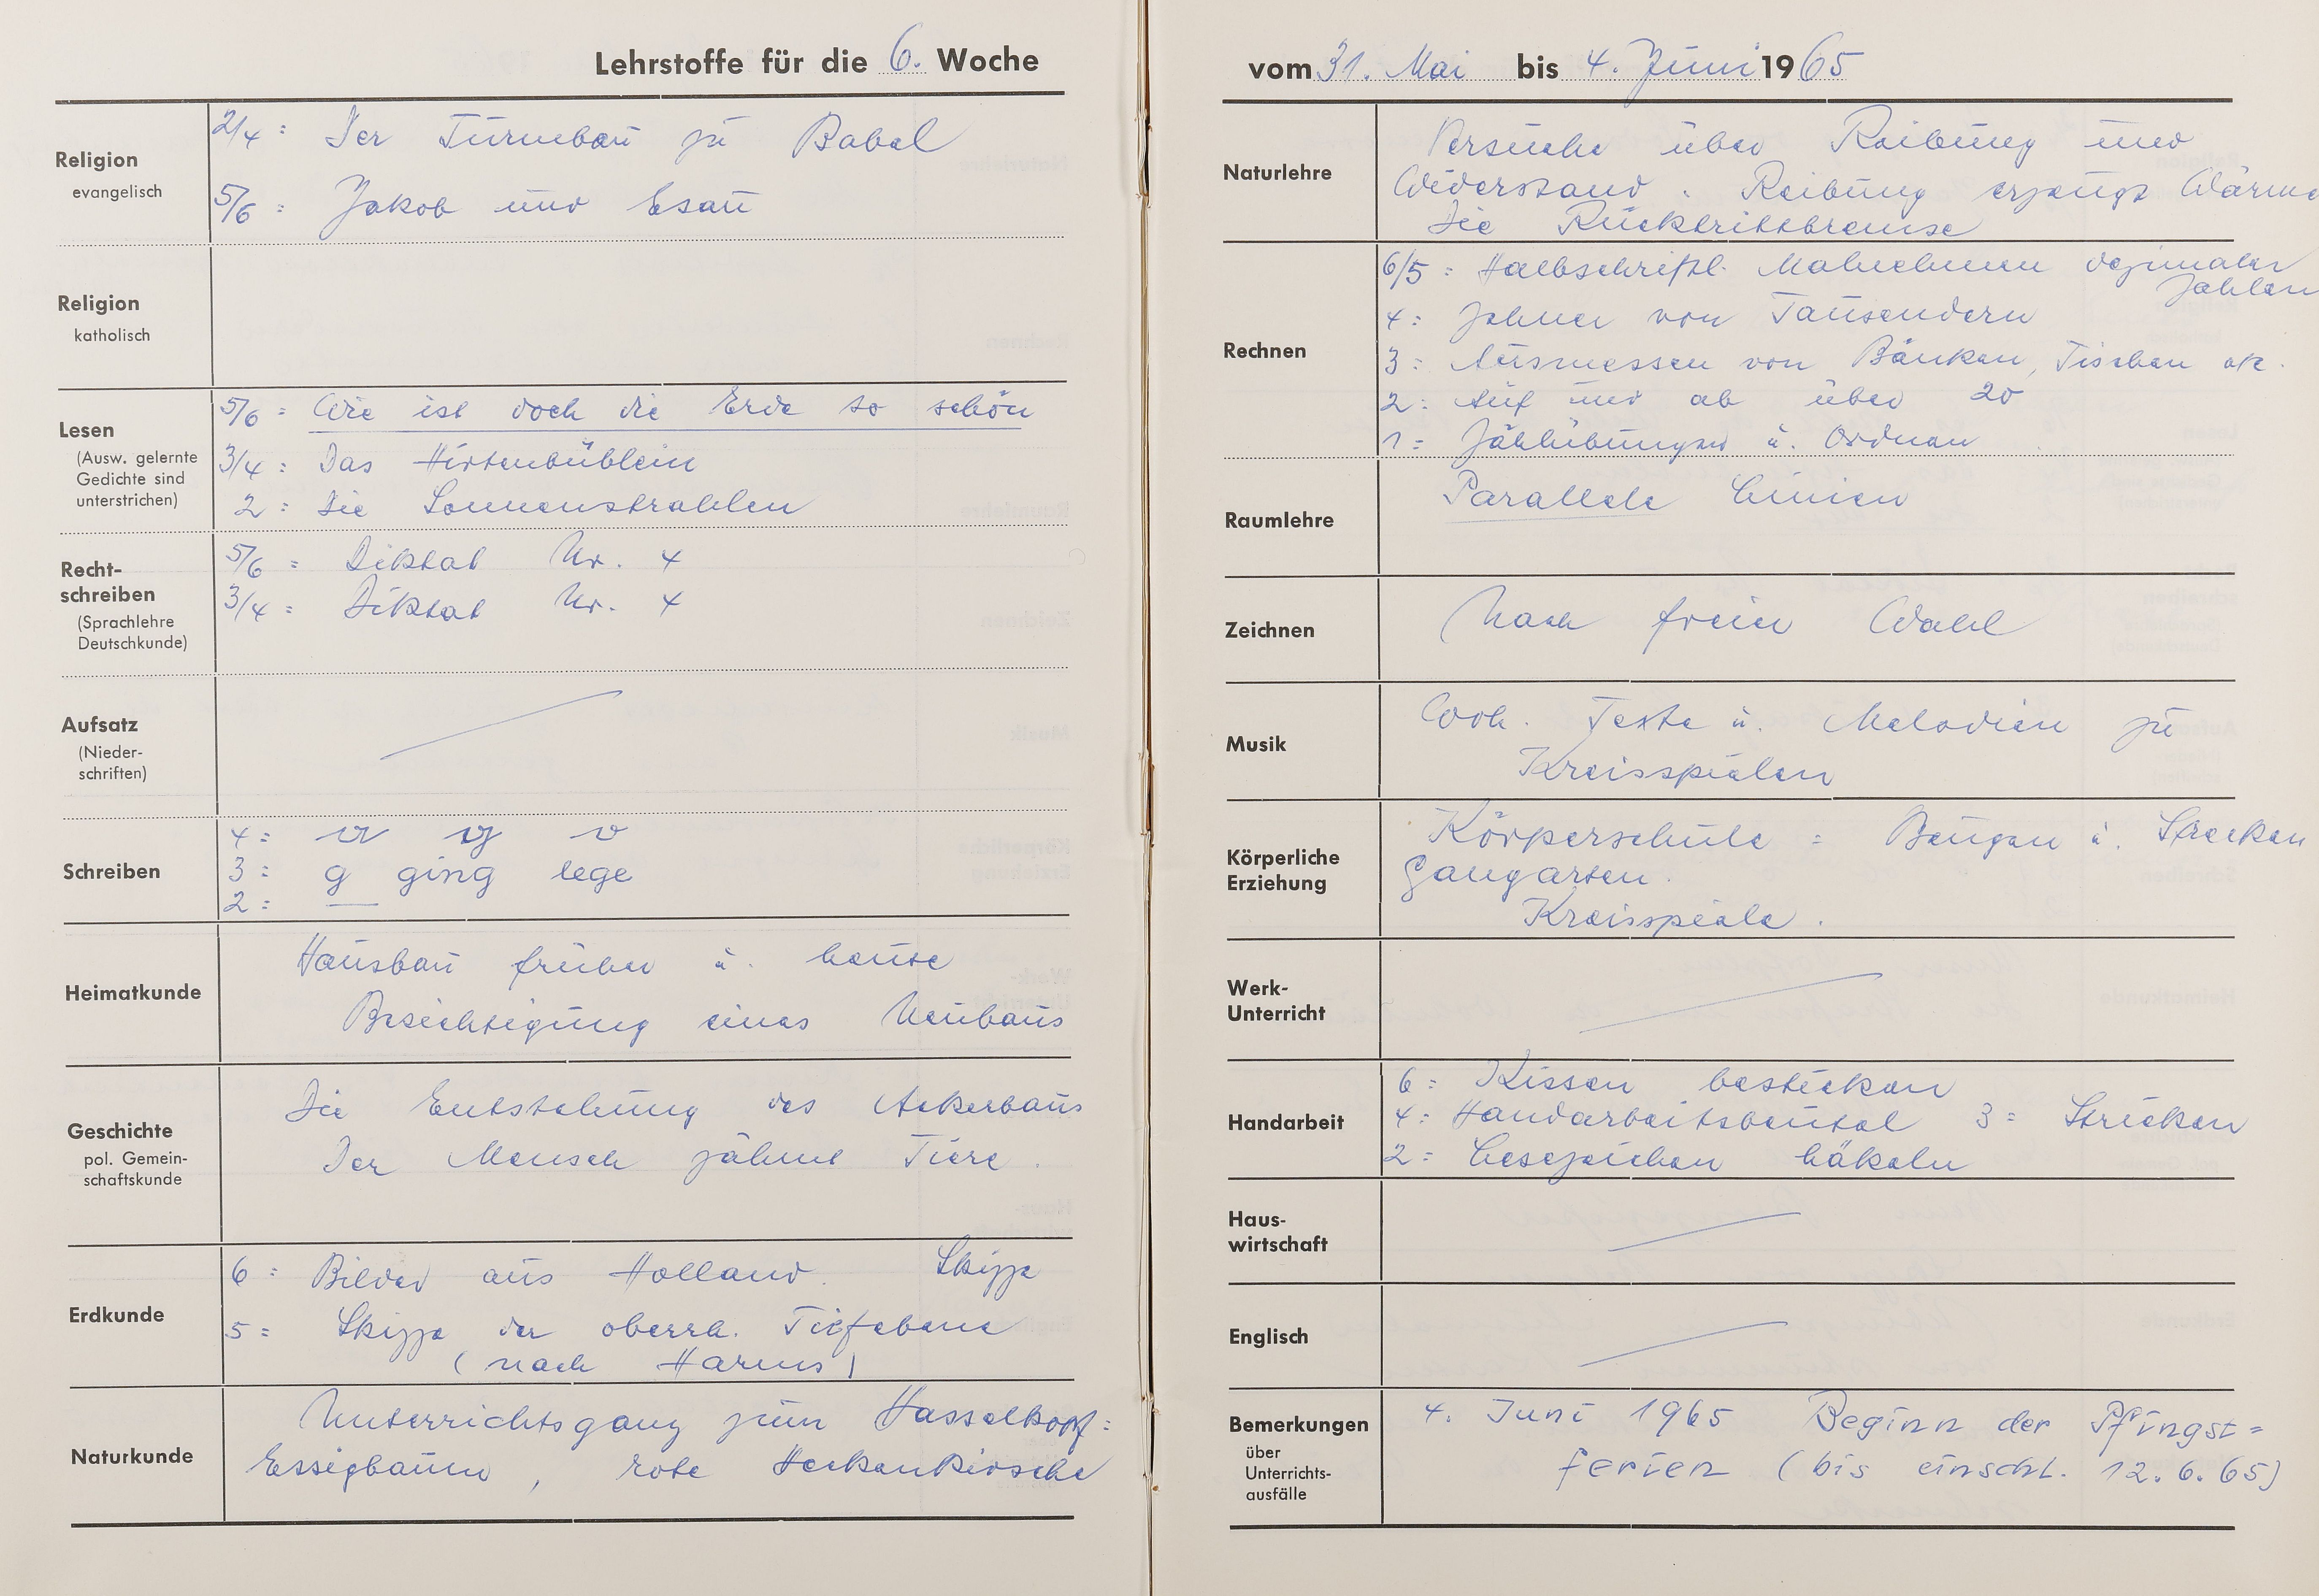 Lehrstoffe für die 6. Woche
Religion
evangelisch
2/4 : Der Turmbau zu Babel
5/6 : Jakob und Esau
Religion
katholisch
Lesen
(Ausw. gelernte
Gedichte sind
unterstrichen)
5/6 : Wie ist doch die Erde so schön
3/4 : Das Hirtenbüblein
2 : Die Sonnenstrahlen
Recht-
schreiben
(Sprachlehre
Deutschkunde)
5/6 : Diktat Nr. 4
3/4 : Diktat Nr. 4
Aufsatz
(Nieder-
schriften)
Schreiben
4 :
3 : g ging lege
2 : —
Heimatkunde
Hausbau früher u. heute
Besichtigung eines Neubaus
Geschichte
pol. Gemein-
schaftskunde
Die Entstehung des Ackerbaus
Der Mensch zähmt Tiere.
Erdkunde
6 : Bilder aus Holland. Skizze
5 : Skizze der oberrh. Tiefebene
(nach Harms)
Naturkunde
Unterrichtsgang zum Hasselkopf :
Essigbaum, rote Heckenkirsche
vom 31. Mai bis 4. Juni 1965
Naturlehre
Versuche über Reibung und
Widerstand. Reibung erzeugt Wärme
Die Rücktrittbremse
Rechnen
6/5 : Halbschriftl. Malnehmen dezimaler
Zahlen
4 : Zehner von Tausendern
3 : Ausmessen von Bänken, Tischen etc.
2 : Auf und ab über 20
1 : Zählübungen u. Ordnen
Raumlehre
Parallele Linien
Zeichnen
Nach freier Wahl
Musik
Wdh. Texte u. Melodien zu
Kreisspielen
Körperliche
Erziehung
Körperschule : Beugen u. Strecken
Gangarten.
Kreisspiele.
Werk-
Unterricht
Handarbeit
6 : Kissen besticken
4 : Handarbeitsbeutel 3 : Stricken
2 : Lesezeichen häkeln
Haus-
wirtschaft
Englisch
Bemerkungen
über
Unterrichts-
ausfälle
4. Juni 1965 Beginn der Pfingst=
ferien (bis einschl. 12.6.65)